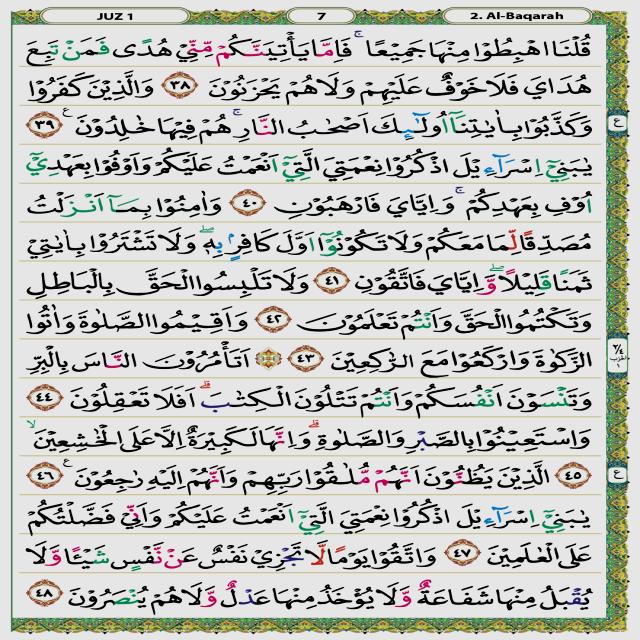 JUZ 1 7 2. Al-Baqarah
قُلْنَا اهْبِطُوْا مِنْهَا جَمِيْعًا ۚ فَاِمَّا يَأْتِيَنَّكُمْ مِّنِّيْ هُدًى فَمَنْ تَبِعَ
هُدَايَ فَلَا خَوْفٌ عَلَيْهِمْ وَلَا هُمْ يَحْزَنُوْنَ ٣٨ وَالَّذِيْنَ كَفَرُوْا
وَكَذَّبُوْا بِاٰيٰتِنَآ اُولٰۤىِٕكَ اَصْحٰبُ النَّارِ ۚ هُمْ فِيْهَا خٰلِدُوْنَ ࣖ ٣٩
يٰبَنِيْٓ اِسْرَاۤءِيْلَ اذْكُرُوْا نِعْمَتِيَ الَّتِيْٓ اَنْعَمْتُ عَلَيْكُمْ وَاَوْفُوْا بِعَهْدِيْٓ
اُوْفِ بِعَهْدِكُمْ ۚ وَاِيَّايَ فَارْهَبُوْنِ ٤٠ وَاٰمِنُوْا بِمَآ اَنْزَلْتُ
مُصَدِّقًا لِّمَا مَعَكُمْ وَلَا تَكُوْنُوْٓا اَوَّلَ كَافِرٍۢ بِهٖ ۖ وَلَا تَشْتَرُوْا بِاٰيٰتِيْ
ثَمَنًا قَلِيْلًا ۖ وَّاِيَّايَ فَاتَّقُوْنِ ٤١ وَلَا تَلْبِسُوا الْحَقَّ بِالْبَاطِلِ
وَتَكْتُمُوا الْحَقَّ وَاَنْتُمْ تَعْلَمُوْنَ ٤٢ وَاَقِيْمُوا الصَّلٰوةَ وَاٰتُوا
الزَّكٰوةَ وَارْكَعُوْا مَعَ الرّٰكِعِيْنَ ٤٣ ۞ اَتَأْمُرُوْنَ النَّاسَ بِالْبِرِّ
وَتَنْسَوْنَ اَنْفُسَكُمْ وَاَنْتُمْ تَتْلُوْنَ الْكِتٰبَ ۗ اَفَلَا تَعْقِلُوْنَ ٤٤
وَاسْتَعِيْنُوْا بِالصَّبْرِ وَالصَّلٰوةِ ۗ وَاِنَّهَا لَكَبِيْرَةٌ اِلَّا عَلَى الْخٰشِعِيْنَ ۙ
٤٥ الَّذِيْنَ يَظُنُّوْنَ اَنَّهُمْ مُّلٰقُوْا رَبِّهِمْ وَاَنَّهُمْ اِلَيْهِ رٰجِعُوْنَ ࣖ ٤٦
يٰبَنِيْٓ اِسْرَاۤءِيْلَ اذْكُرُوْا نِعْمَتِيَ الَّتِيْٓ اَنْعَمْتُ عَلَيْكُمْ وَاَنِّيْ فَضَّلْتُكُمْ
عَلَى الْعٰلَمِيْنَ ٤٧ وَاتَّقُوْا يَوْمًا لَّا تَجْزِيْ نَفْسٌ عَنْ نَّفْسٍ شَيْـًٔا وَّلَا
يُقْبَلُ مِنْهَا شَفَاعَةٌ وَّلَا يُؤْخَذُ مِنْهَا عَدْلٌ وَّلَا هُمْ يُنْصَرُوْنَ ٤٨